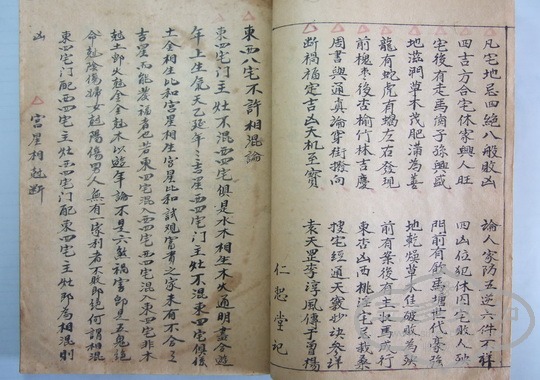 凡宅地忌四絕八般敗凶 論人家防五逆六件不祥
四吉方合宅休 興人旺 四凶位犯休囚宅敗人破
宅後有走馬崗子孫興盛 門前有飲馬塘世代豪強
地滋潤草木茂肥滿為善 地乾燥草木佳破敗為殃
龍有蛇虎有 左右發現 前有案後有主 馬成行
前槐棗後杏榆竹林吉慶 東杏凶西桃淫宅忌栽桑
周書與通真論穿街撥向 搜宅經通天竅妙訣參詳
斷禍福定吉凶天机至寶 袁天罡李淳風傳于曾楊
仁恕堂記
東西八宅不許相混論
東四宅門主灶不混西四宅俱是水木相生木火通明盡合遊
年上生氣天乙延年三吉星西四宅門主灶不混東四宅俱後
土金相生比和宮星相生宮星比和試观富貴之家未有不合三
吉星而能發福者也若東四宅混入西四宅西四宅混入東四宅非木
尅土即火尅金金尅木以遊年論不是六煞禍害即是五鬼絕
命尅陰傷婦女尅陽傷男人無有一家利者不敗即絕何謂相混
東四宅門配西四宅主灶西四宅門配東四宅主灶即為相混則
凶 宮星相尅斷